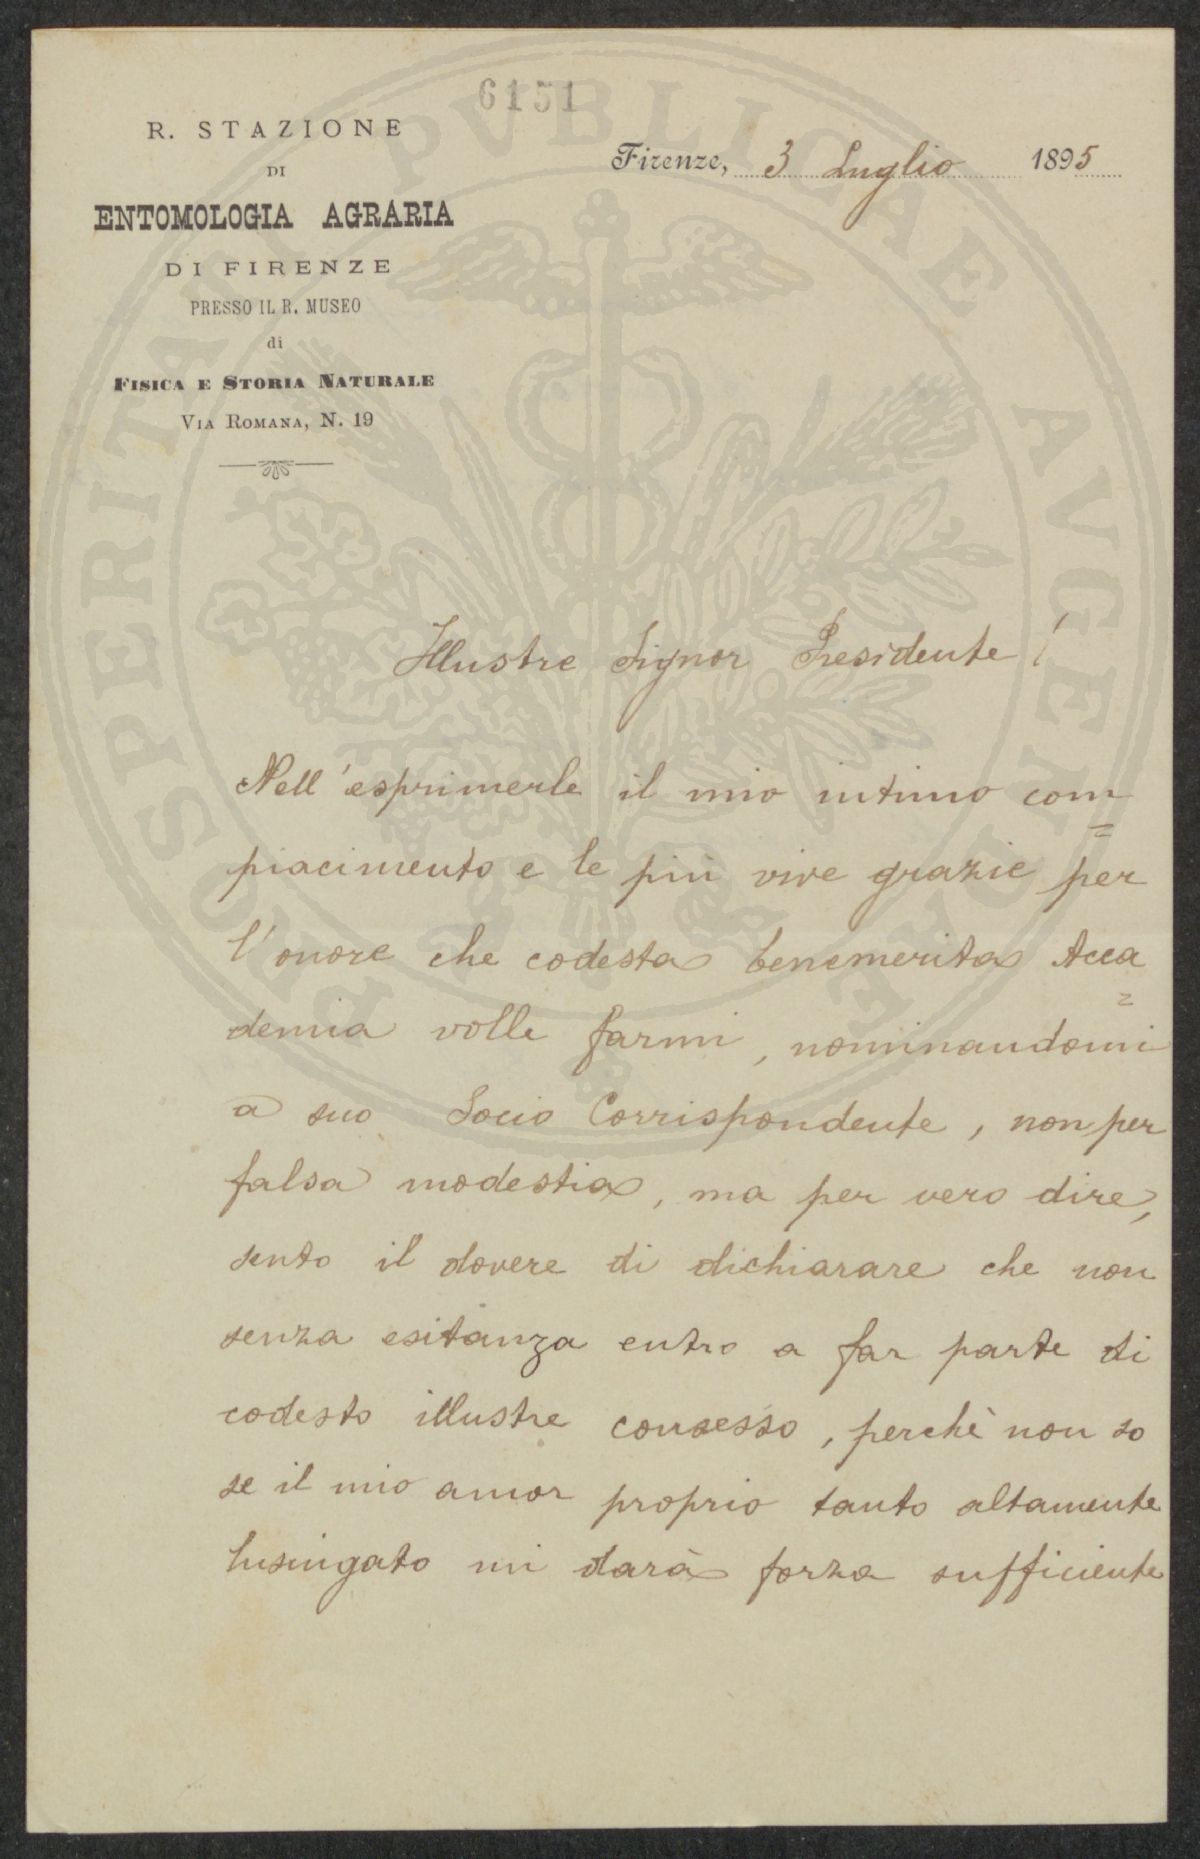 6151
R. STAZIONE
DI
ENTOMOLOGIA AGRARIA
DI FIRENZE
PRESSO IL R. MUSEO
di
FISICA E STORIA NATURALE
VIA ROMANA, N. 19
Firenze, 3 Luglio 1895
Illustre Signor Presidente!
Nell'esprimerle il mio intimo com=
piacimento e le più vive grazie per
l'onore che codesta benemerita Acca=
demia volle farmi, nominandomi
a suo Socio Corrispondente, non per
falsa modestia, ma per vero dire,
sento il dovere di dichiarare che non
senza esitanza entro a far parte di
codesto illustre consesso, perchè non so
se il mio amor proprio tanto altamente
lusingato mi darà forza sufficiente
PROSPERITATI PVBLICAE AVGENDAE